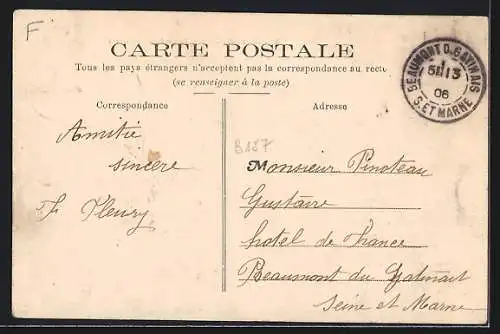 F
CARTE POSTALE
Tous les pays étrangers n'acceptent pas la correspondance au recto
(se renseigner à la poste)
BEAUMONT D. GATINAIS
13
06
S. ET MARNE
Correspondance
Adresse
Amitié
sincère
F. Fleury
B187
Monsieur Pinoteau
Gustave
hotel de France
Beaumont du Gatinais
Seine et Marne